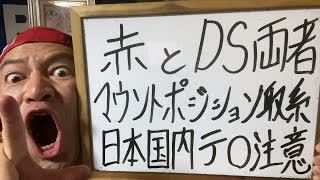 赤とDS両者
マウントポジション取系
日本国内テ〇注意